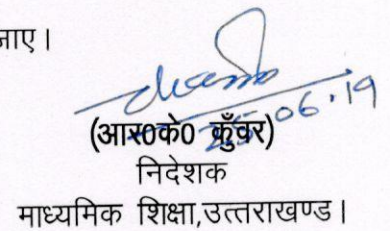 जाए।
25.06.19
(आर0के0 कुँवर)
निदेशक
माध्यमिक शिक्षा,उत्तराखण्ड।